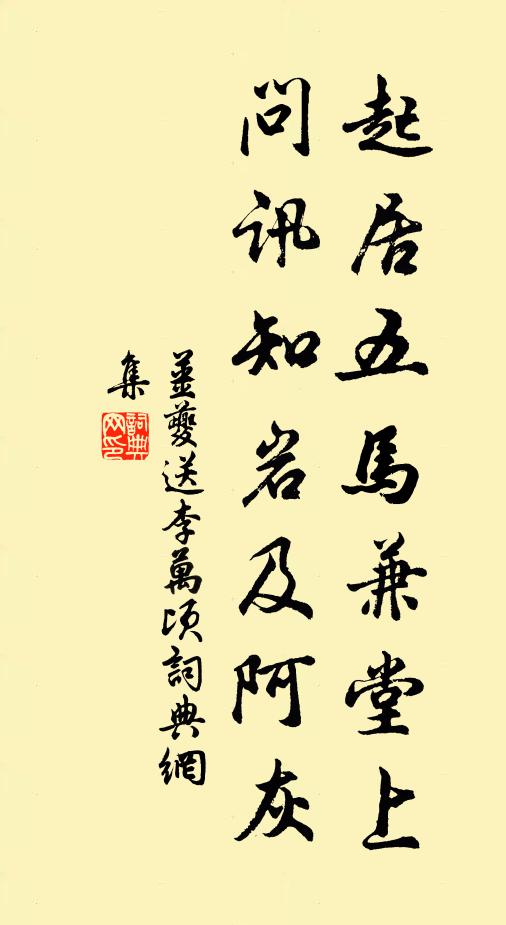 起居五馬兼堂上
問訊知岩及阿灰
姜夔送李萬頃詞典網
集
詞典網印